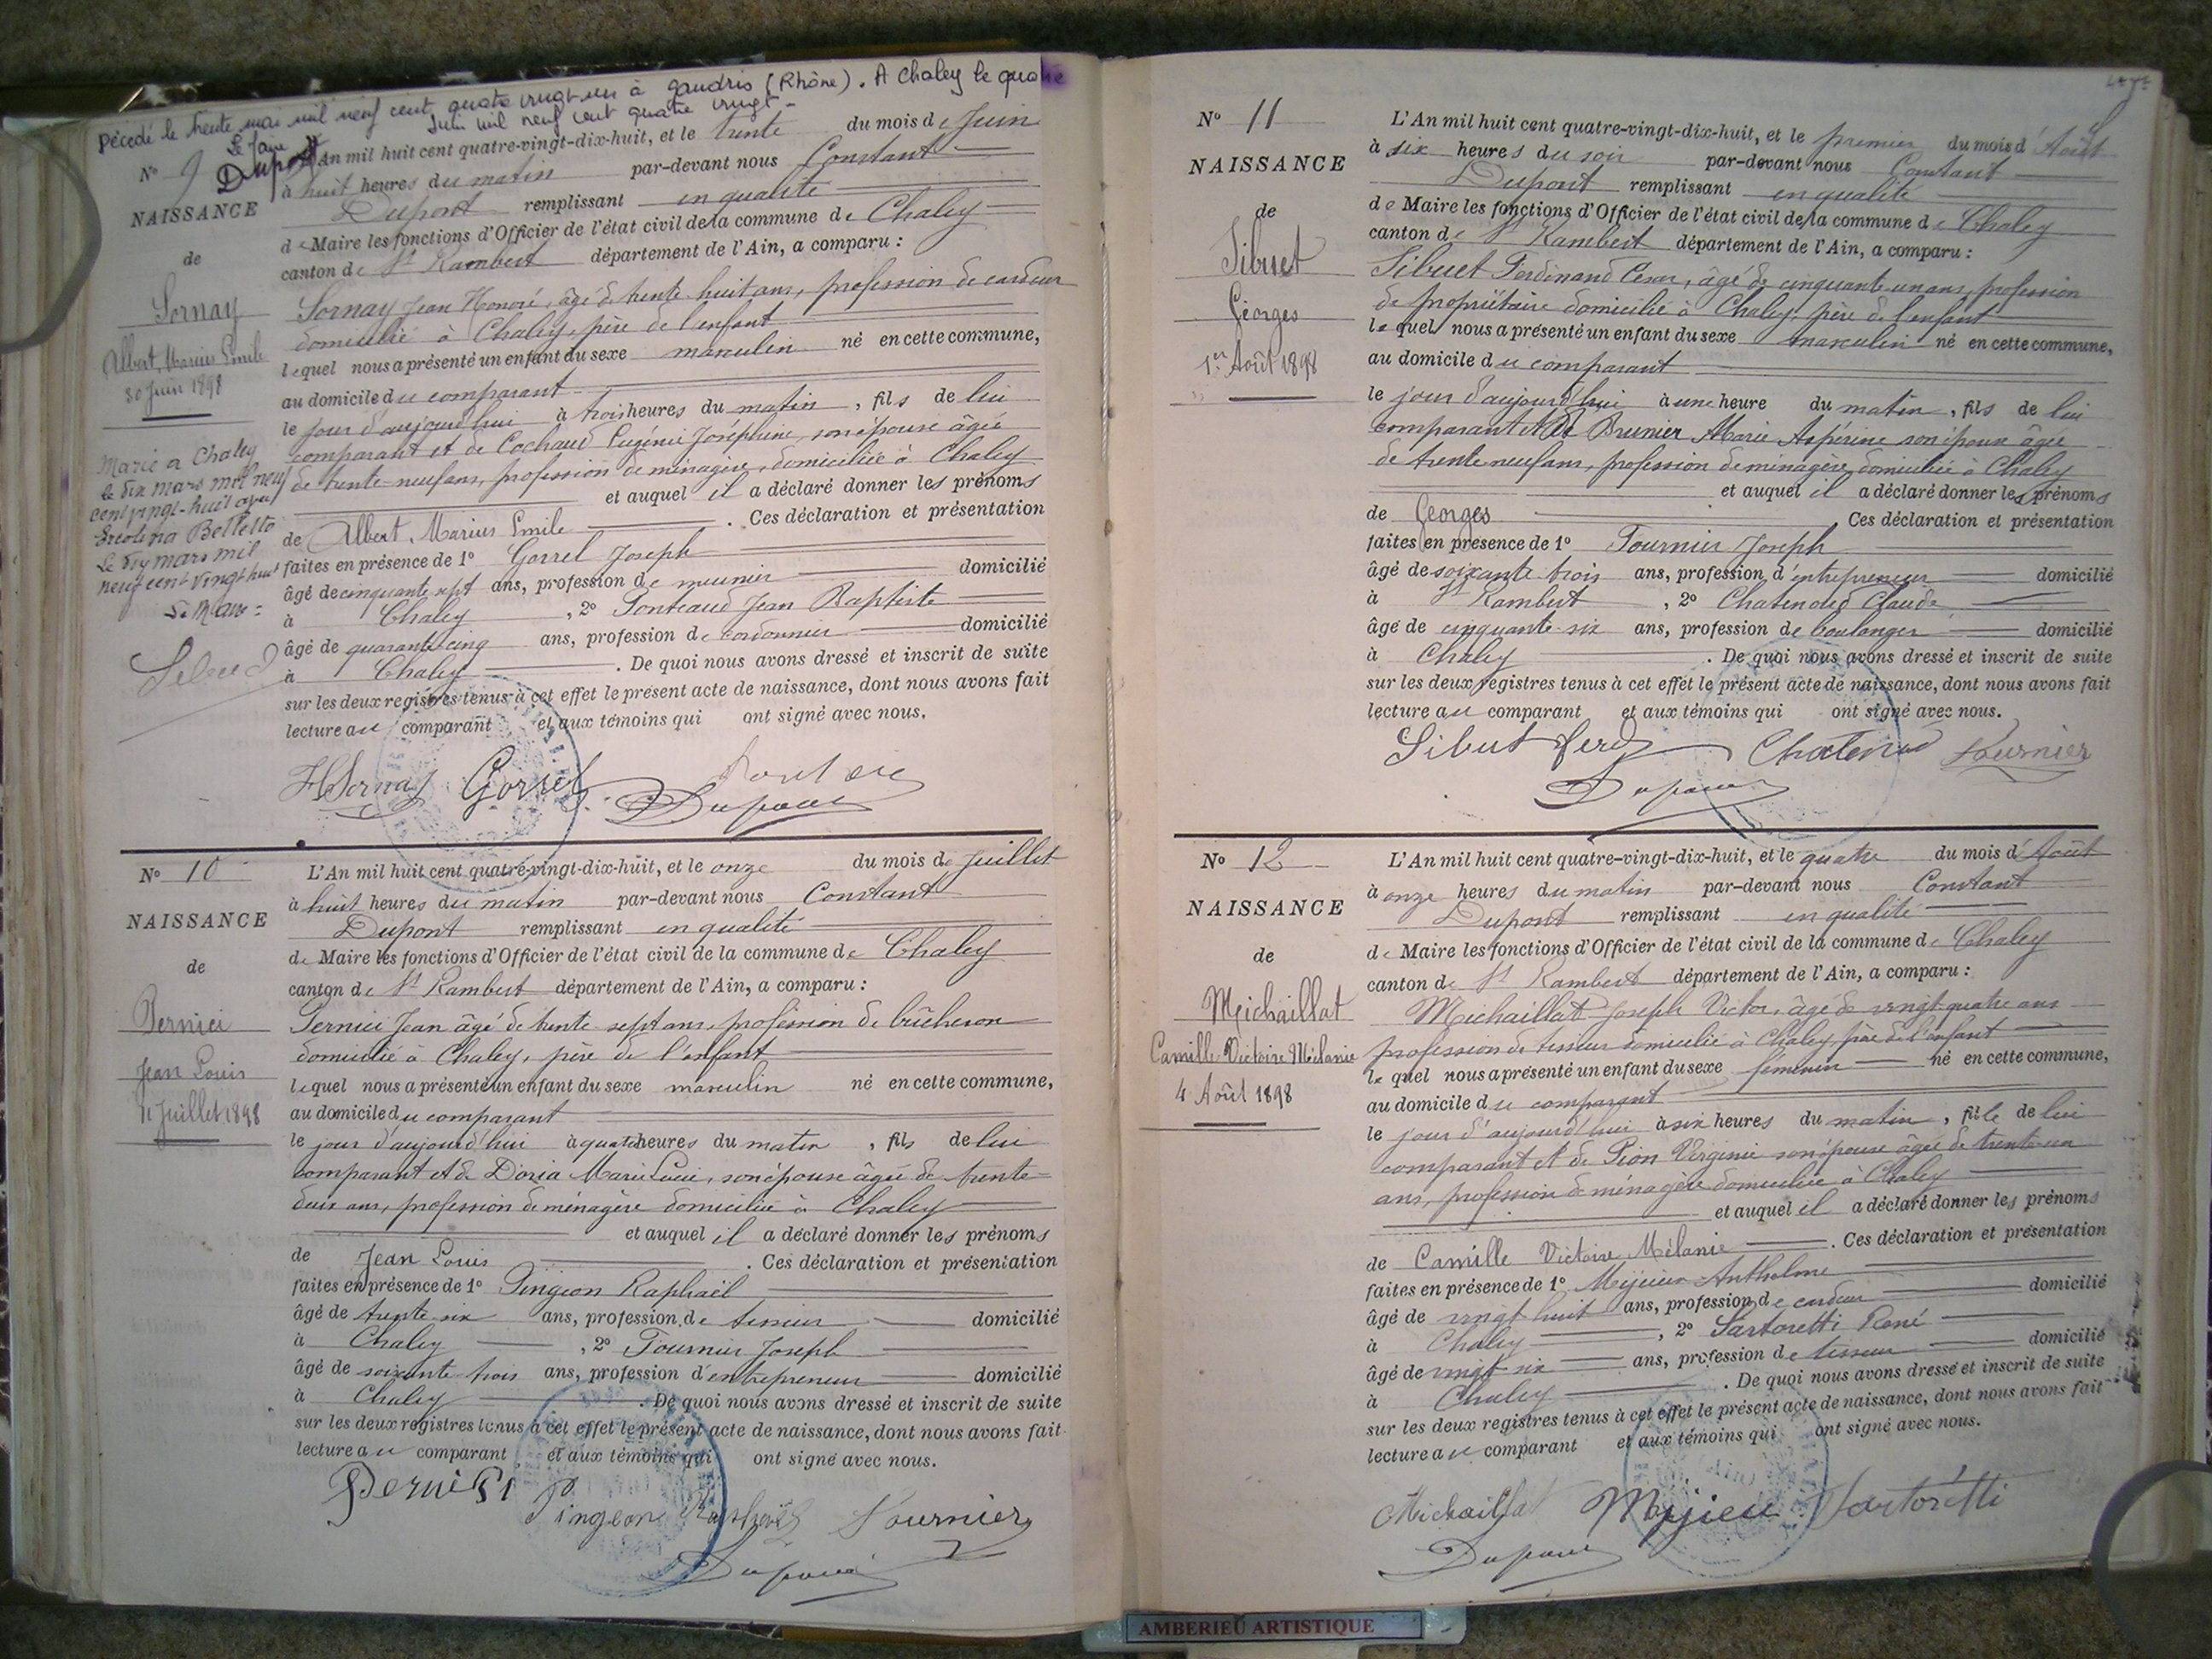 Décédé le trente mai mil neuf cent quatre vingt un à (Rhône). A Chaley le quatre
Juin mil neuf cent quatre vingt-
Le Maire
Dupont
No 9
NAISSANCE
de
Sornay
Albert, Marius Emile
30 Juin 1898
Marié à Chaley
le dix mars mil neuf
cent vingt-huit avec
Belletto
Le dix mars mil
neuf cent vingt huit
Le Maire:
L'An mil huit cent quatre-vingt-dix-huit, et le trente du mois de Juin
à huit heures du matin par-devant nous Constant
Dupont remplissant en qualité
de Maire les fonctions d'Officier de l'état civil de la commune de Chaley
canton de St Rambert département de l'Ain, a comparu :
Sornay Jean Honoré, âgé de trente-huit ans, profession de cardeur
domicilié à Chaley, père de l'enfant
lequel nous a présenté un enfant du sexe masculin né en cette commune,
au domicile du comparant
le jour d'aujourd'hui à trois heures du matin, fils de lui
comparant et de Cochaud Eugénie Joséphine, son épouse âgée
de trente-neuf ans, profession de ménagère, domiciliée à Chaley
et auquel il a déclaré donner les prénoms
de Albert, Marius Emile. Ces déclaration et présentation
faites en présence de 1° Gorrel Joseph
âgé de cinquante sept ans, profession de meunier domicilié
à Chaley, 2° Ponteaud Jean Baptiste
âgé de quarante-cinq ans, profession de cordonnier domicilié
à Chaley. De quoi nous avons dressé et inscrit de suite
sur les deux registres tenus à cet effet le présent acte de naissance, dont nous avons fait
lecture au comparant et aux témoins qui ont signé avec nous.
HSornay Gorrel
Dupont
No 10
NAISSANCE
de
Pernici
Jean Louis
11 Juillet 1898
L'An mil huit cent quatre-vingt-dix-huit, et le onze du mois de Juillet
à huit heures du matin par-devant nous Constant
Dupont remplissant en qualité
de Maire les fonctions d'Officier de l'état civil de la commune de Chaley
canton de St Rambert département de l'Ain, a comparu :
Pernici Jean âgé de trente-sept ans, profession de bûcheron
domicilié à Chaley, père de l'enfant
lequel nous a présenté un enfant du sexe masculin né en cette commune,
au domicile du comparant
le jour d'aujourd'hui à quatre heures du matin, fils de lui
comparant et de Doria Marie Lucie, son épouse âgée de trente-
deux ans, profession de ménagère domiciliée à Chaley
et auquel il a déclaré donner les prénoms
de Jean Louis. Ces déclaration et présentation
faites en présence de 1° Pingeon Raphaël
âgé de trente-six ans, profession de tisseur domicilié
à Chaley, 2° Fournier Joseph
âgé de soixante trois ans, profession d'entrepreneur domicilié
à Chaley. De quoi nous avons dressé et inscrit de suite
sur les deux registres tenus à cet effet le présent acte de naissance, dont nous avons fait
lecture au comparant et aux témoins qui ont signé avec nous.
Pernici Pingeon Raphaël Fournier
Dupont
No 11
NAISSANCE
de
Sibuet
Georges
1er Août 1898
L'An mil huit cent quatre-vingt-dix-huit, et le premier du mois d'Août
à six heures du soir par-devant nous Constant
Dupont remplissant en qualité
de Maire les fonctions d'Officier de l'état civil de la commune de Chaley
canton de St Rambert département de l'Ain, a comparu :
Sibuet Ferdinand César, âgé de cinquante-un ans, profession
de propriétaire domicilié à Chaley, père de l'enfant
lequel nous a présenté un enfant du sexe masculin né en cette commune,
au domicile du comparant
le jour d'aujourd'hui à une heure du matin, fils de lui
comparant et de Brunier Marie Aspérine son épouse âgée
de trente neuf ans, profession de ménagère, domiciliée à Chaley
et auquel il a déclaré donner les prénoms
de Georges Ces déclaration et présentation
faites en présence de 1° Fournier Joseph
âgé de soixante trois ans, profession d'entrepreneur domicilié
à St Rambert, 2° Chatenoud Claude
âgé de cinquante-six ans, profession de boulanger domicilié
à Chaley. De quoi nous avons dressé et inscrit de suite
sur les deux registres tenus à cet effet le présent acte de naissance, dont nous avons fait
lecture au comparant et aux témoins qui ont signé avec nous.
Sibuet Ferd Chatenoud Fournier
Dupont
No 12
NAISSANCE
de
Michaillat
Camille Victoire Mélanie
4 Août 1898
L'An mil huit cent quatre-vingt-dix-huit, et le quatre du mois d'Août
à onze heures du matin par-devant nous Constant
Dupont remplissant en qualité
de Maire les fonctions d'Officier de l'état civil de la commune de Chaley
canton de St Rambert département de l'Ain, a comparu :
Michaillat Joseph Victor, âgé de vingt-quatre ans
profession de tisseur domicilié à Chaley, père de l'enfant
lequel nous a présenté un enfant du sexe féminin né en cette commune,
au domicile du comparant
le jour d'aujourd'hui à six heures du matin, fille de lui
comparant et de Pion Virginie son épouse âgée de trente-un
ans, profession de ménagère domiciliée à Chaley
et auquel il a déclaré donner les prénoms
de Camille Victoire Mélanie. Ces déclaration et présentation
faites en présence de 1° Anthelme
âgé de vingt huit ans, profession de cardeur domicilié
à Chaley, 2° Sartoretti René
âgé de vingt-six ans, profession de tisseur domicilié
à Chaley. De quoi nous avons dressé et inscrit de suite
sur les deux registres tenus à cet effet le présent acte de naissance, dont nous avons fait
lecture au comparant et aux témoins qui ont signé avec nous.
Michaillat Sartoretti
Dupont
AMBERIEU ARTISTIQUE